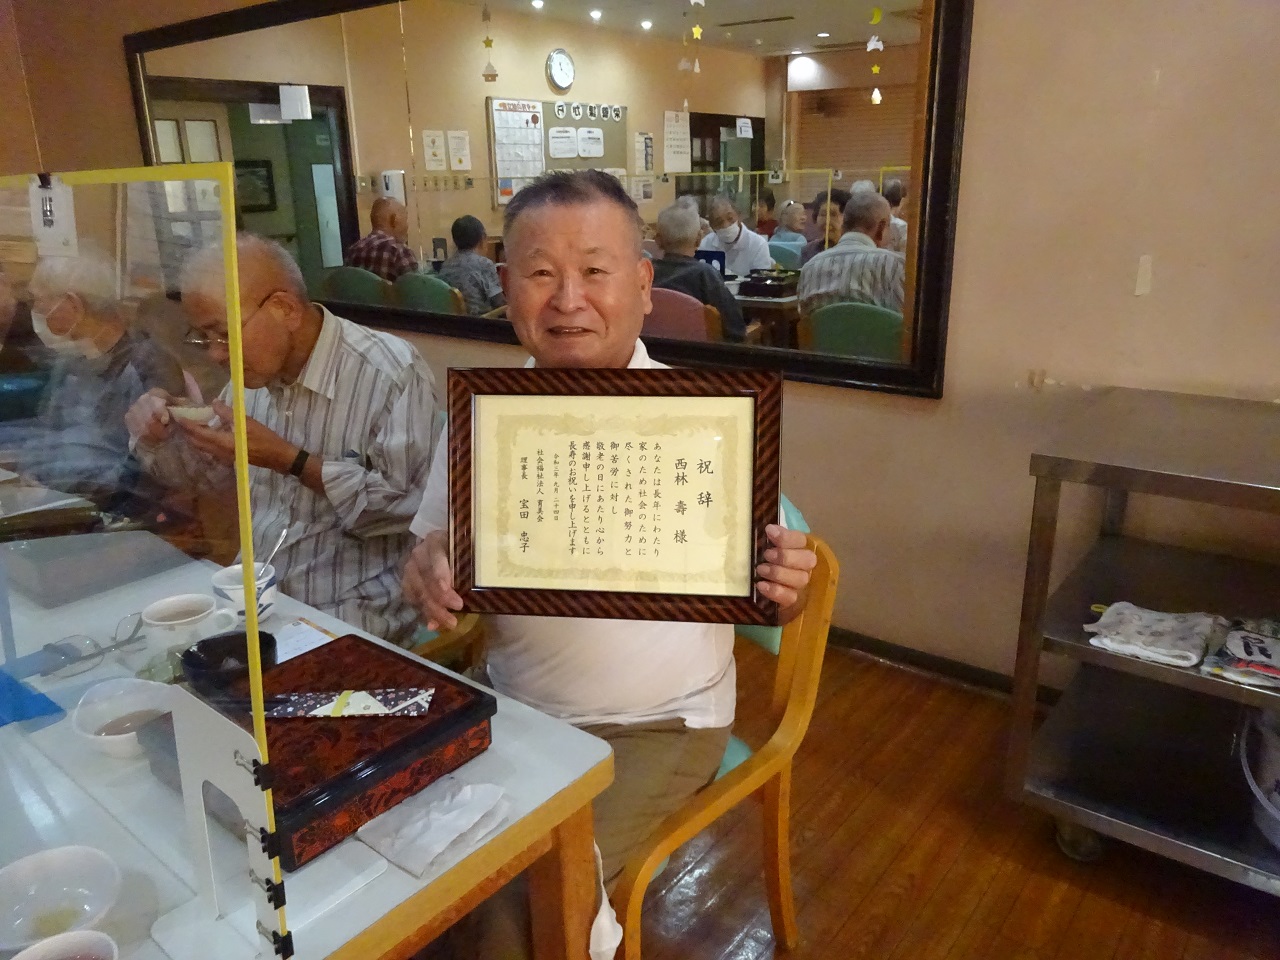 祝辞
西林 壽 様
あなたは長年にわたり
家のため社会のために
尽くされた御努力と
御苦労に対し
敬老の日にあたり心から
感謝申し上げるとともに
長寿のお祝いを申し上げます
令和三年九月二十四日
社会福祉法人 育美会
理事長 宝田 忠子